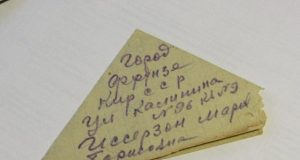 Город
Фрунзе
Кир ССР
ул Калинина
№ 96 кв № 9
Иссерзон Мари
Борисовна